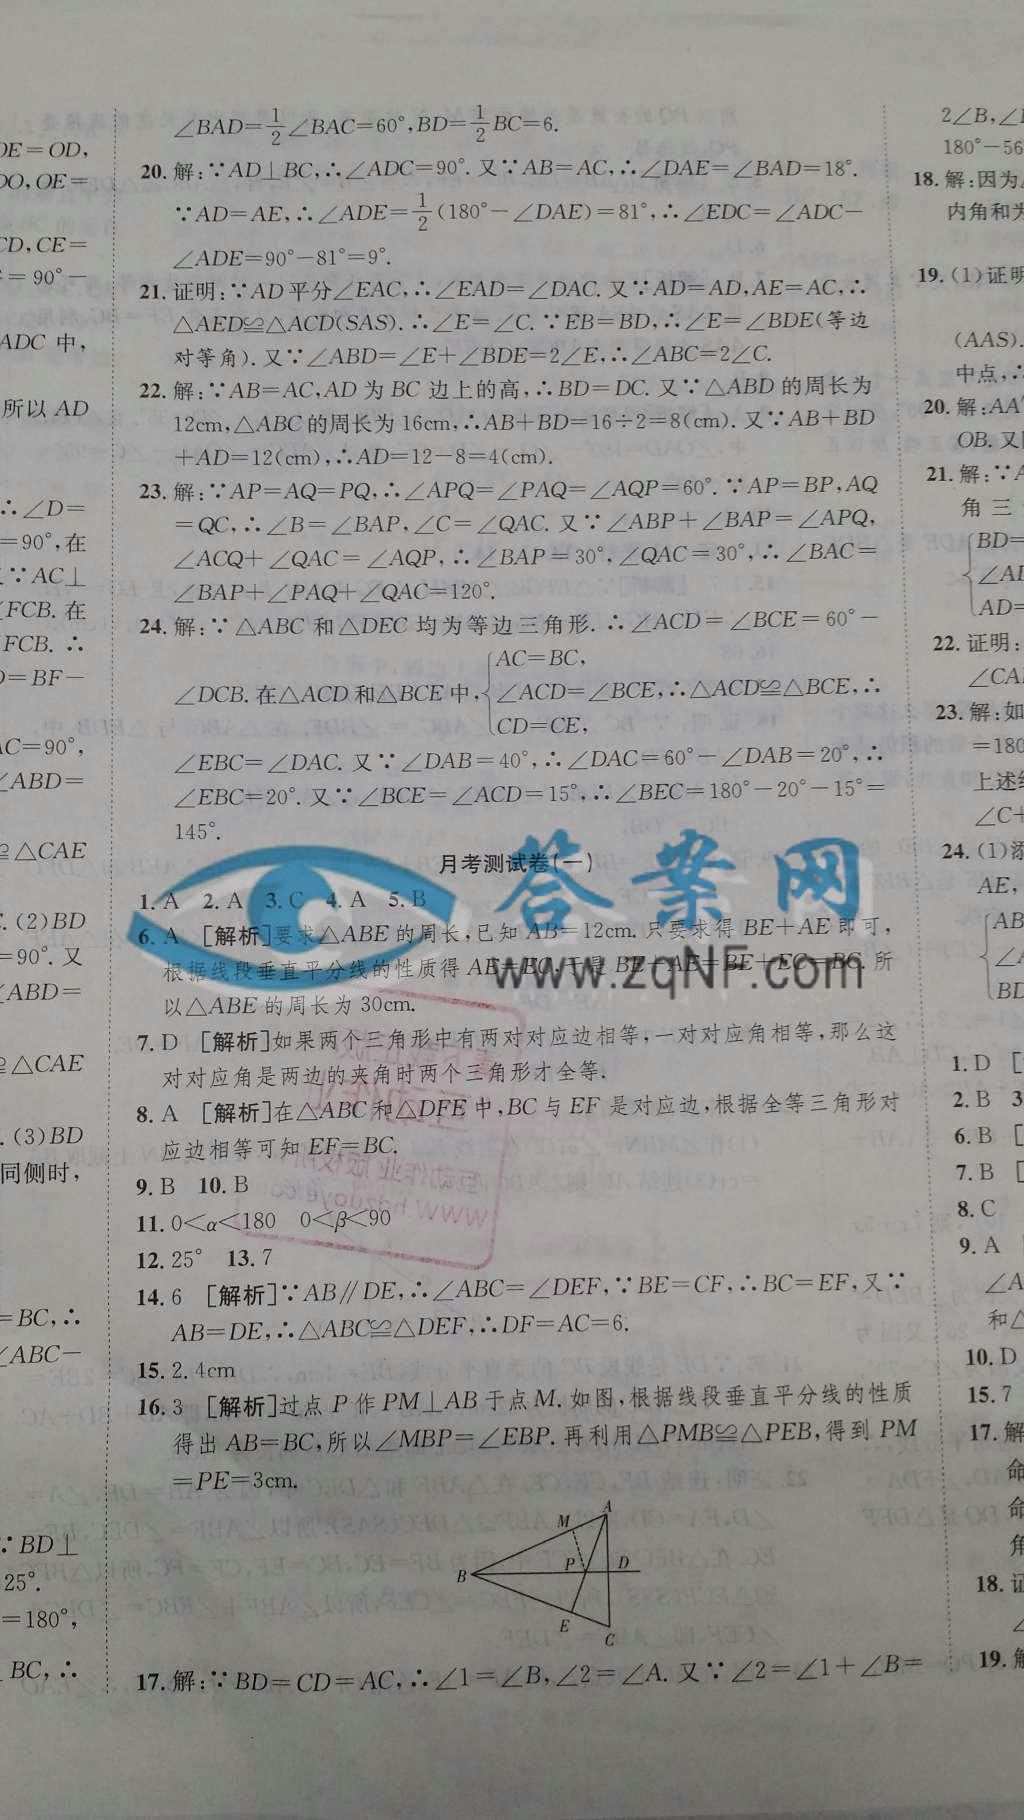 OE=OD,
DO,OE=
CD,CE=
=90°-
ADC 中,
所以 AD
∴∠D=
=90°,在
又∵AC⊥
∠FCB.在
FCB.∴
D=BF-
AC=90°,
∠ABD=
≌△CAE
.(2)BD
=90°.又
∠ABD=
≌△CAE
.(3)BD
同侧时,
=BC,∴
∠ABC-
∵BD⊥
25°.
=180°,
BC,∴
∠BAD=1/2∠BAC=60°,BD=1/2BC=6.
20.解:∵AD⊥BC,∴∠ADC=90°.又∵AB=AC,∴∠DAE=∠BAD=18°.
∵AD=AE,∴∠ADE=1/2(180°-∠DAE)=81°,∴∠EDC=∠ADC-
∠ADE=90°-81°=9°.
21.证明:∵AD平分∠EAC,∴∠EAD=∠DAC.又∵AD=AD,AE=AC,∴
△AED≌△ACD(SAS).∴∠E=∠C.∵EB=BD,∴∠E=∠BDE(等边
对等角).又∵∠ABD=∠E+∠BDE=2∠E,∴∠ABC=2∠C.
22.解:∵AB=AC,AD 为 BC 边上的高,∴BD=DC.又∵△ABD 的周长为
12cm,△ABC的周长为16cm,∴AB+BD=16÷2=8(cm).又∵AB+BD
+AD=12(cm),∴AD=12-8=4(cm).
23.解:∵AP=AQ=PQ,∴∠APQ=∠PAQ=∠AQP=60°.∵AP=BP,AQ
=QC,∴∠B=∠BAP,∠C=∠QAC.又∵∠ABP+∠BAP=∠APQ,
∠ACQ+∠QAC=∠AQP,∴∠BAP=30°,∠QAC=30°,∴∠BAC=
∠BAP+∠PAQ+∠QAC=120°.
24.解:∵△ABC 和△DEC 均为等边三角形.∴∠ACD=∠BCE=60°-
AC=BC,
∠DCB.在△ACD和△BCE中,{∠ACD=∠BCE,∴△ACD≌△BCE,∴
CD=CE,
∠EBC=∠DAC.又∵∠DAB=40°,∴∠DAC=60°-∠DAB=20°,∴
∠EBC=20°.又∵∠BCE=∠ACD=15°,∴∠BEC=180°-20°-15°=
145°.
月考测试卷(一)
1.A 2.A 3.C 4.A 5.B
6.A [解析]要求△ABE的周长,已知 AB=12cm.只要求得 BE+AE 即可,
根据线段垂直平分线的性质得 AE=EC,于是 BE+AE=BE+EC=BC.所
以△ABE的周长为30cm.
7.D [解析]如果两个三角形中有两对对应边相等,一对对应角相等,那么这
对对应角是两边的夹角时两个三角形才全等.
8.A [解析]在△ABC和△DFE中,BC与 EF 是对应边,根据全等三角形对
应边相等可知 EF=BC.
9.B 10.B
11.0<α<180 0<β<90
12.25° 13.7
14.6 [解析]∵AB∥DE,∴∠ABC=∠DEF,∵BE=CF,∴BC=EF,又∵
AB=DE,∴△ABC≌△DEF,∴DF=AC=6.
15.2.4cm
16.3 [解析]过点 P 作 PM⊥AB 于点 M.如图,根据线段垂直平分线的性质
得出 AB=BC,所以∠MBP=∠EBP.再利用△PMB≌△PEB,得到 PM
=PE=3cm.
A
M
B
P
D
E
C
17.解:∵BD=CD=AC,∴∠1=∠B,∠2=∠A.又∵∠2=∠1+∠B=
答案网
www.zqNF.com
互动作业 版权所
www.hdzuoye.com
2∠B,∠
180°-56
18.解:因为
内角和为
19.(1)证明
(AAS).
中点,∴
20.解:AA′
OB.又
21.解:∵A
角三
BD=
∠AD
AD=
22.证明:
∠CA
23.解:如
=180
上述
∠C+
24.(1)添
AE,
AB
∠A
BD
1.D [
2.B 3
6.B [
7.B [
8.C
9.A
∠A
和△
10.D
15.7
17.解
命
命
角
18.证
∠
19.解